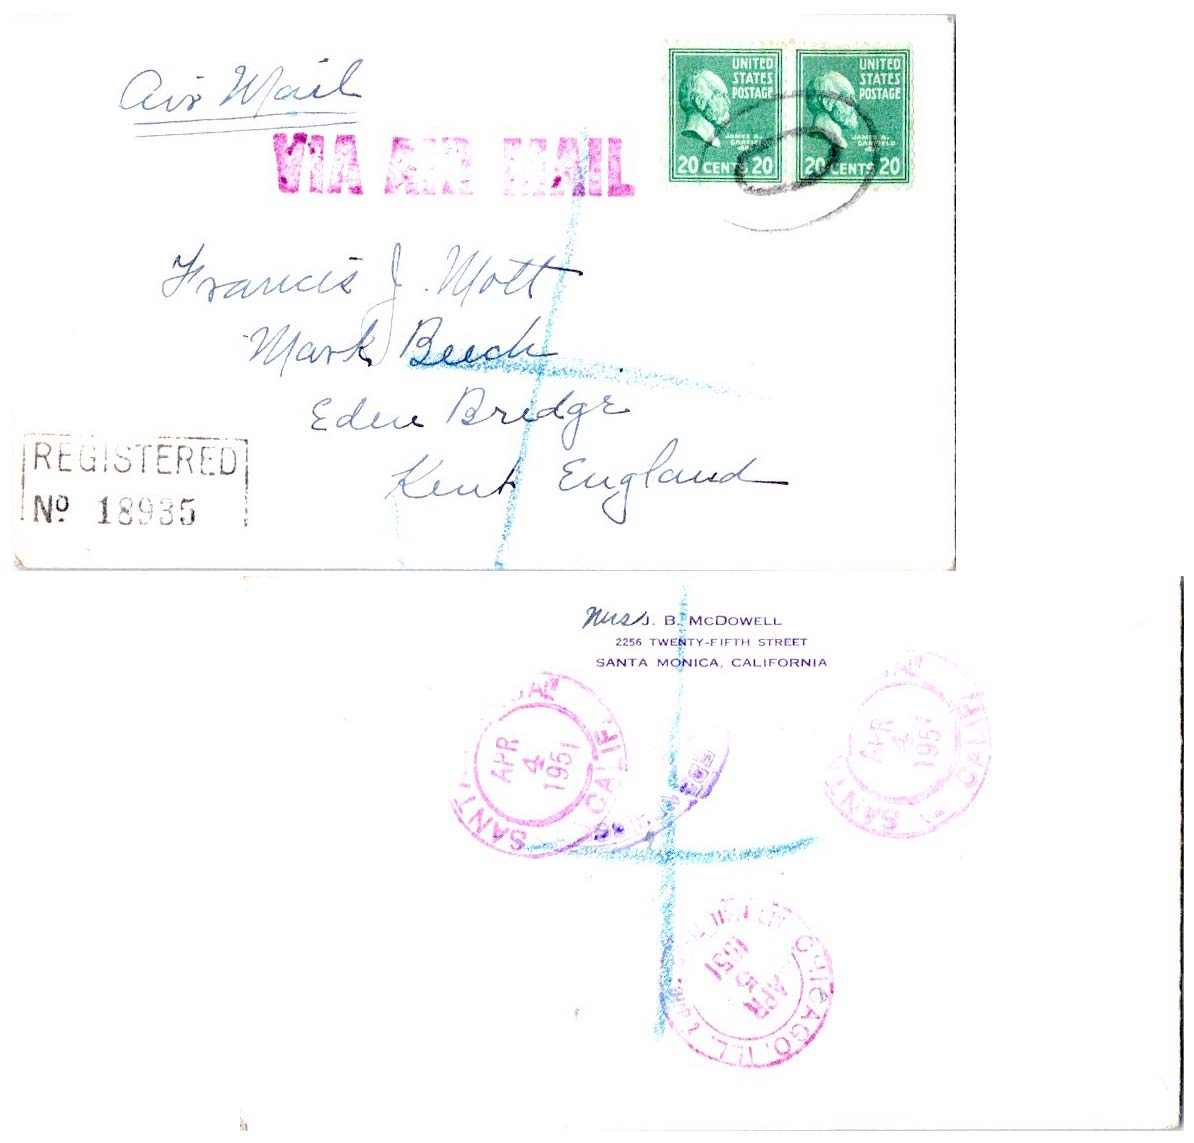 Air Mail
VIA AIR MAIL
UNITED
STATES
POSTAGE
JAMES A.
GARFIELD
20 CENTS 20
UNITED
STATES
POSTAGE
JAMES A.
GARFIELD
20 CENTS 20
Francis J. Mott
Mark Beech
Eden Bridge
Kent England
REGISTERED
Nº 18935
J. B. McDOWELL
2256 TWENTY-FIFTH STREET
SANTA MONICA, CALIFORNIA
SANTA CALIF
APR
4
1951
SANTA CALIF
APR
4
1951
CHICAGO, ILL.
APR
5
1951